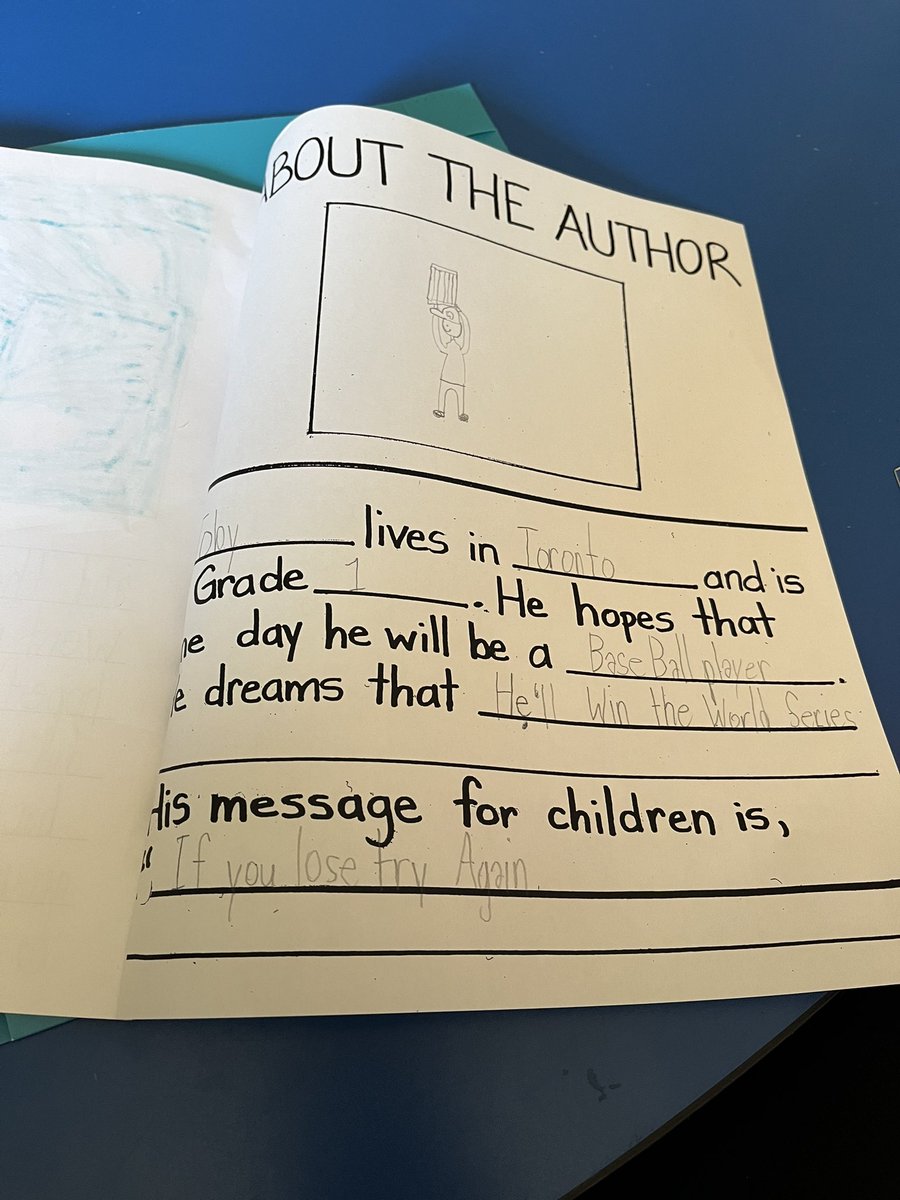 ABOUT THE AUTHOR
lives in Toronto and is
Grade 1. He hopes that
day he will be a Base Ball player.
dreams that He'll Win the World Series
His message for children is,
" If you lose try Again